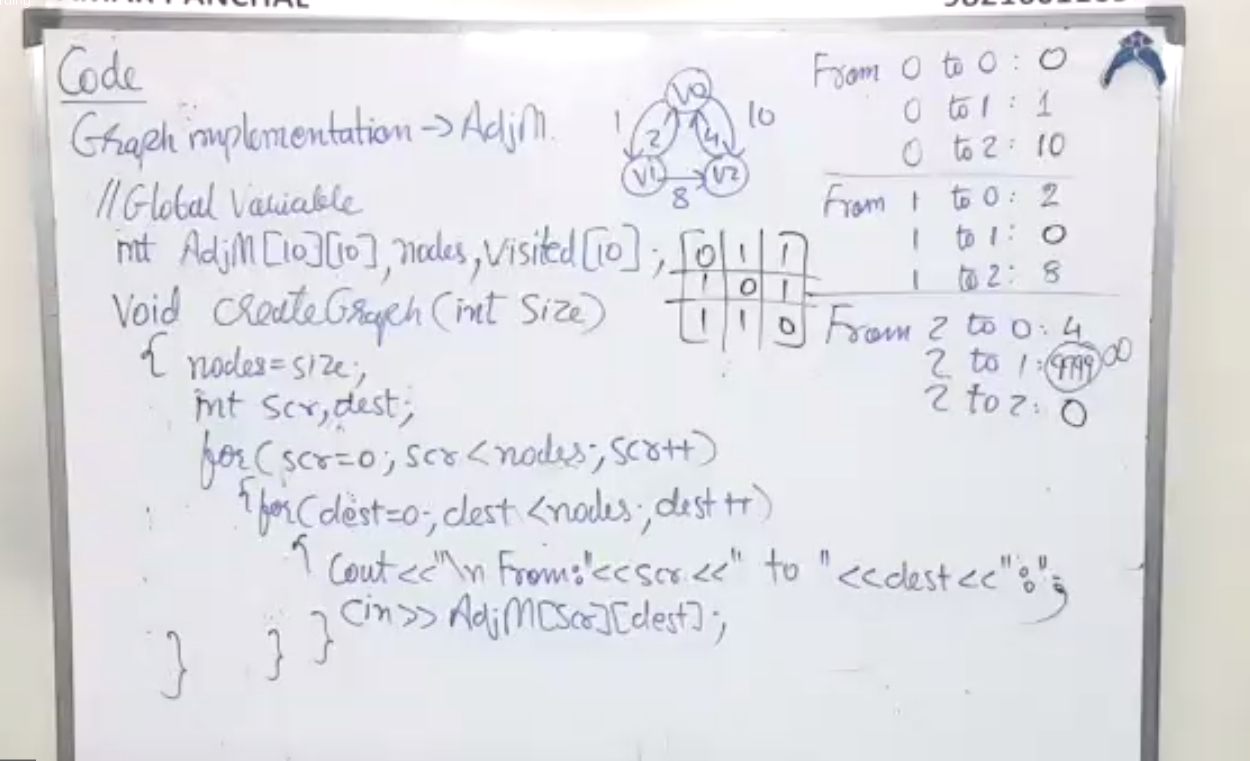 Code
Graph implementation → AdjM.
//Global Variable
int AdjM[10][10], nodes, Visited[10];
Void CreateGraph(int Size)
{ nodes=size;
int scr, dest;
for(scr=0; scr<nodes; scr++)
{for(dest=0; dest<nodes; dest++)
{ Cout<<"\n From:"<<scr<<" to "<<dest<<":";
Cin>> AdjM[Scr][dest];
} } }
V0
1 2 4 10
V1 V2
8
0 1 1
1 0 1
1 1 0
From 0 to 0: 0
0 to 1: 1
0 to 2: 10
From 1 to 0: 2
1 to 1: 0
1 to 2: 8
From 2 to 0: 4
2 to 1: 9999 ∞
2 to 2: 0